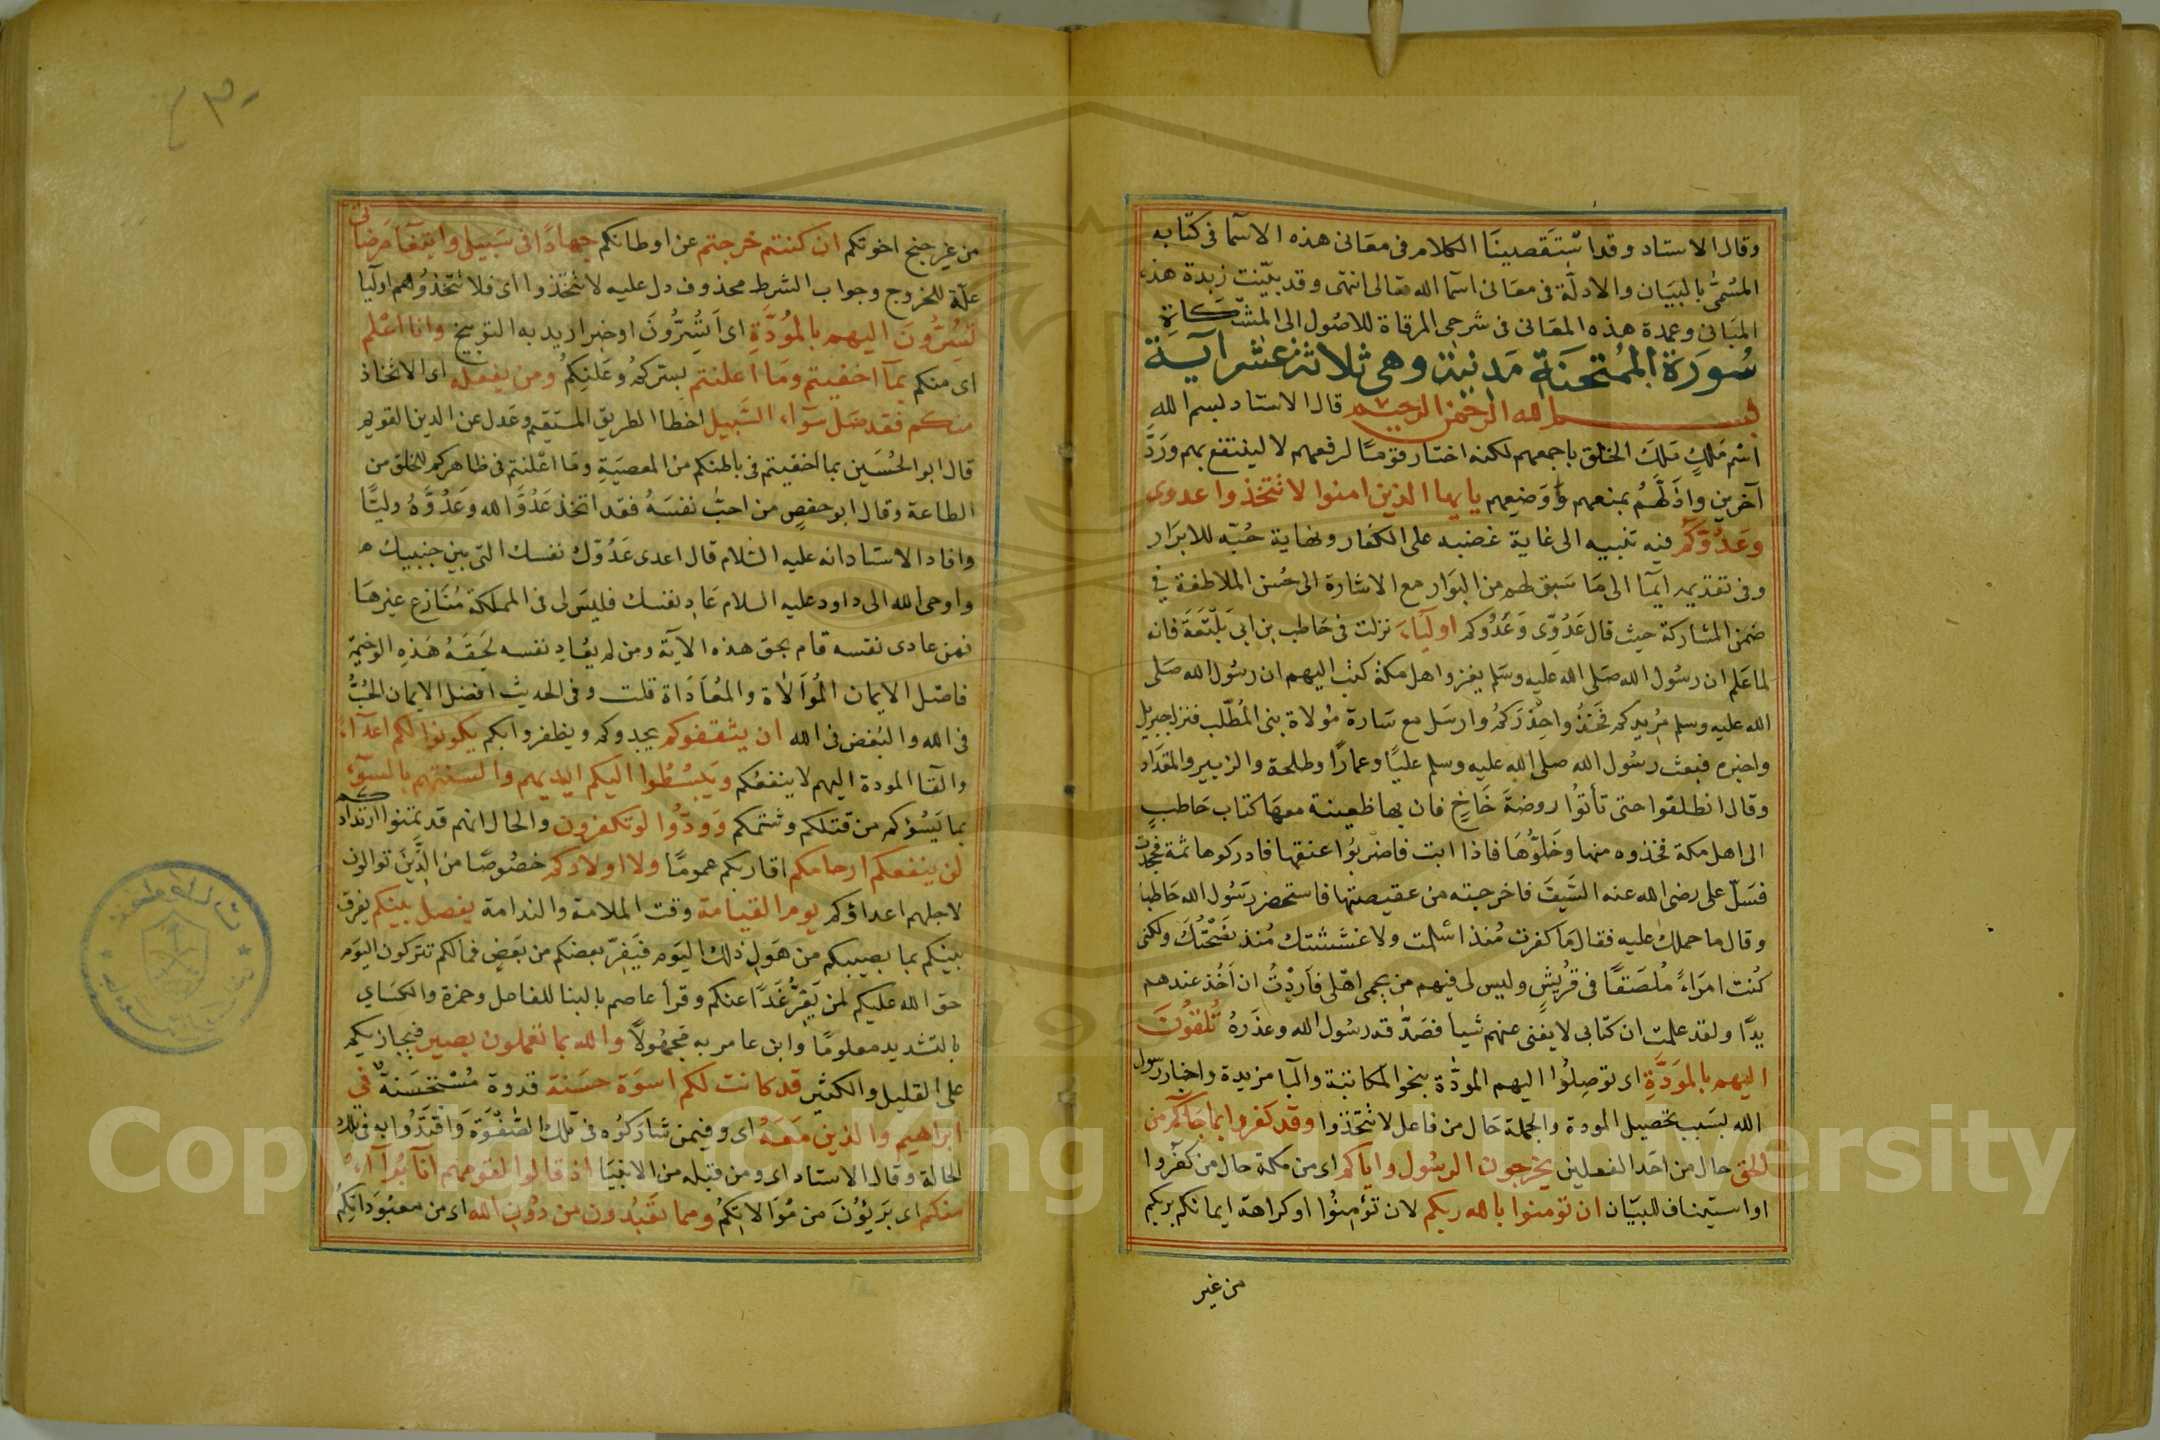 وقال الاستاد وقد استقصينا الكلام فى معانى هذه الاسما فى كتابه
المسمى بالبيان والادلة فى معانى اسما الله تعالى انتهى وقد بينت زبدة هذه
المبانى وعمدة هذه المعانى فى شرحى المرقاة للاصول الى المشكاة
سورة الممتحنة مدنية وهى ثلاث عشر آية
بسم الله الرحمن الرحيم قال الاستاد بسم الله
اسم ملك ملك الخلق باجمعهم لكنه اختار قوما لرفعهم لا لينتفع بهم ورد
آخرين واذلهم بمنعهم ووضعهم يا يها الذين امنوا لا تتخذوا عدوى
وعدوكم فيه تنبيه الى غاية غضبه على الكفار ونهاية حبه للابرار
وفى تقديمه ايما الى ما سبق لهم من البوار مع الاشارة الى حسن الملاطفة في
ضمن المشاركة حيث قال عدوى وعدوكم اولياء نزلت فى حاطب بن ابي بلتعة فانه
لما علم ان رسول الله صلى الله عليه وسلم يغزو اهل مكة كتب اليهم ان رسول الله صلى
الله عليه وسلم يريدكم فخذوا حذركم وارسل مع سارة مولاة بنى المطلب فنزل جبريل
واخبره فبعث رسول الله صلى الله عليه وسلم عليا وعمارا وطلحة والزبير والمقداد
وقال انطلقوا حتى تأتوا روضة خاخ فان بها ظعينة معها كتاب حاطب
الى اهل مكة فخذوه منها وخلوها فاذا ابت فاضربوا عنقها فادركوها ثمة فجحدت
فسل على رضى الله عنه السيف فاخرجته من عقيصتها فاستحضر رسول الله حاطبا
وقال ما حملك عليه فقال ما كفرت منذ اسلمت ولا غششتك منذ نصحتك ولكنى
كنت امراء ملصقا فى قريش وليس لى فيهم من يحمى اهلى فاردت ان اخذ عندهم
يدا ولقد علمت ان كتابى لا يغنى عنهم شيا فصدق رسول الله وعذره تلقون
اليهم بالمودة اى توصلوا اليهم المودة بنحو المكاتبة والبا مزيدة واخبار رسول
الله بسبب تحصيل المودة والجملة حال من فاعل لا تتخذوا وقد كفروا بما جاءكم من
الحق حال من احد الفعلين يخرجون الرسول واياكم اى من مكة حال من كفروا
او استيناف للبيان ان تؤمنوا بالله ربكم لان تؤمنوا او كراهة ايمانكم بربكم
من غير
من غير جنح اخوتكم ان كنتم خرجتم عن اوطانكم جهادا فى سبيلى وابتغا مرضاتى
علة للخروج وجواب الشرط محذوف دل عليه لا تتخذوا اى فلا تتخذوهم اوليا
تسرون اليهم بالمودة اى اتسرون او خبر اريد به التوبيخ وانا اعلم
اى منكم بما اخفيتم وما اعلنتم بستركم وعلنكم ومن يفعله اى الاتخاذ
منكم فقد ضل سواء السبيل اخطا الطريق المستقيم وعدل عن الدين القويم
قال ابو الحسين بما اخفيتم فى باطنكم من المعصية وما اعلنتم فى ظاهركم للخلق من
الطاعة وقال ابو حفص من احب نفسه فقد اتخذ عدو الله وعدوه وليا
وافاد الاستاد انه عليه السلام قال اعدى عدوك نفسك التى بين جنبيك
واوحى الله الى داود عليه السلام عاد نفسك فليس لى فى المملكة منازع غيرها
فمن عادى نفسه قام بحق هذه الآية ومن لم يعاد نفسه لحقه هذه الوخيمة
فاصل الايمان الموالاة والمعاداة قلت وفى الحديث افضل الايمان الحب
فى الله والبغض فى الله ان يثقفوكم يجدوكم ويظفروا بكم يكونوا لكم اعداء
والقا المودة اليهم لا ينفعكم ويبسطوا اليكم ايديهم والسنتهم بالسوء
بما يسؤكم من قتلكم وشتمكم وودوا لو تكفرون والحال انهم قد تمنوا ارتدادكم
لن ينفعكم ارحامكم اقاربكم عموما ولا اولادكم خصوصا من الذين توالون
لاجلهم اعداؤكم يوم القيامة وقت الملامة والندامة يفصل بينكم يفرق
بينكم بما يصيبكم من هول ذلك اليوم فيفر بعضكم من بعض فمالكم تتركون اليوم
حق الله عليكم لمن يفر غدا عنكم وقرأ عاصم بالبنا للفاعل وحمزة والكساي
بالتشديد معلوما وابن عامر به مجهولا والله بما تعملون بصير فيجازيكم
على القليل والكثير قد كانت لكم اسوة حسنة قدوة مستحسنة في
ابراهيم والذين معه اى وفيمن شاركوه فى تلك الصفوة واقتدوا به فى تلك
الحالة وقال الاستاد اى ومن قبله من الانبيا اذ قالوا لقومهم انا براء
منكم اى بريؤن من موالاتكم ومما تعبدون من دون الله اى من معبوداتكم
Copyright © King Saud University